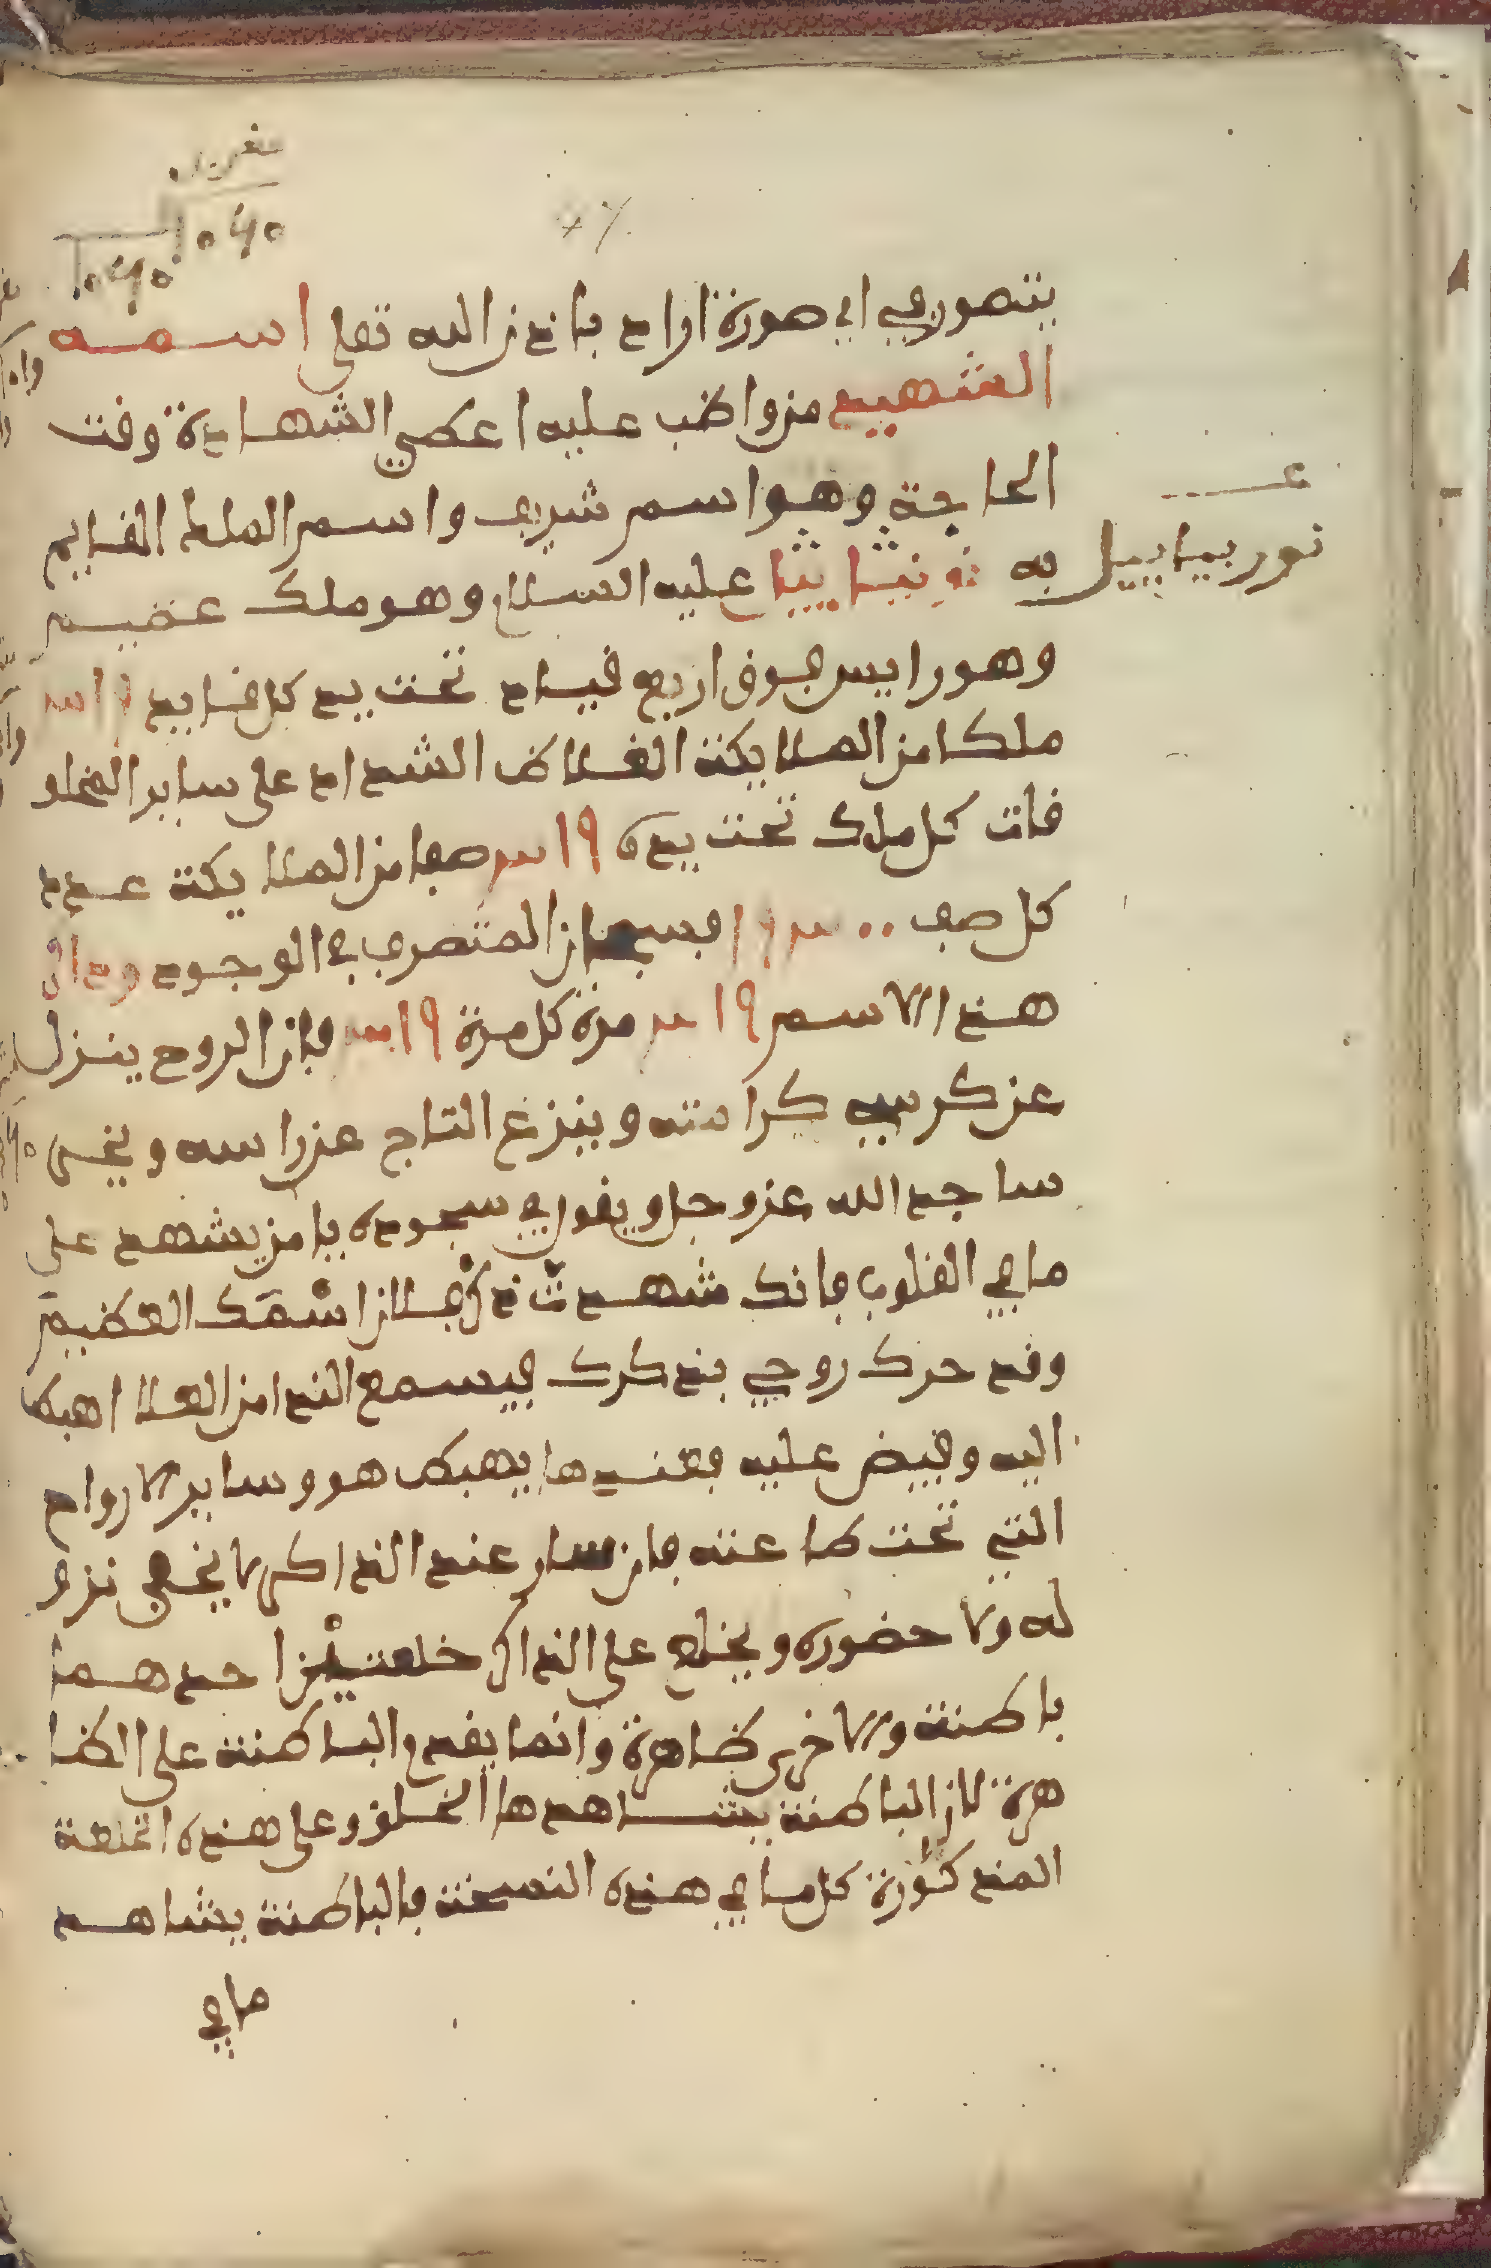 يتصور في اي صورة اراد باذن الله تعلى اسمه
الشهيد من واظب عليه اعطي الشهادة وقت
الحاجة وهو اسم شريف واسم الملك القايم
به عليه السلام وهو ملك عظيم
نور بيابيل
وهو رايس جوق اربع قياد تحت يد كل قايد
ملكا من الملايكة الغلاظ الشداد على ساير المخلو
قات كل ملك تحت يده ١٩ صفا من الملايكة عدد
كل صف فسبحان المتصرف في الوجود
هذا الاسم ١٩ مرة كل مرة ١٩ فان الروح ينزل
عن كرسيه كرامته وينزع التاج عن راسه ويخر
ساجد الله عز وجل ويقول في سجوده يا من يشهد على
ما في القلوب فانك شهدت ذكر فلان اسمك العظيم
وقد حرك روحي بذكرك فيسمع الندا من العلا اهبط
اليه وفيض عليه فعندها يهبط هو وساير الارواح
التي تحت طاعته فان سار عند الذاكر لا يخفى نزو
له ولا حضوره ويخلع على الذاكر خلعتين احدهما
باطنة والاخرى ظاهرة وانما يقدم الباطنة على الظا
هرة لان الباطنة يشاهدها الخلق وعلى هذه الخلعة
المذكورة كل ما في هذه النسخة فالباطنة يشاهد
ما في